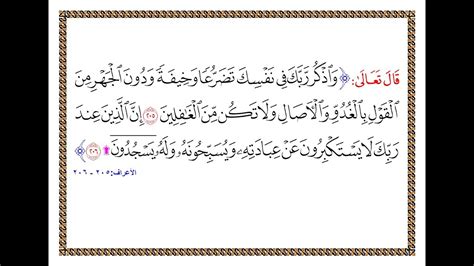 قَالَ تَعَالَىٰ: ﴿ وَٱذۡكُر رَّبَّكَ فِي نَفۡسِكَ تَضَرُّعٗا وَخِيفَةٗ وَدُونَ ٱلۡجَهۡرِ مِنَ
ٱلۡقَوۡلِ بِٱلۡغُدُوِّ وَٱلۡأٓصَالِ وَلَا تَكُن مِّنَ ٱلۡغَٰفِلِينَ ٢٠٥ إِنَّ ٱلَّذِينَ عِندَ
رَبِّكَ لَا يَسۡتَكۡبِرُونَ عَنۡ عِبَادَتِهِۦ وَيُسَبِّحُونَهُۥ وَلَهُۥ يَسۡجُدُونَۤ ۩ ٢٠٦ ﴾
الأعراف: ٢٠٥ - ٢٠٦